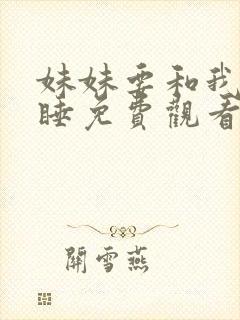 妹妹要和我
睡免費觀看
關雪燕